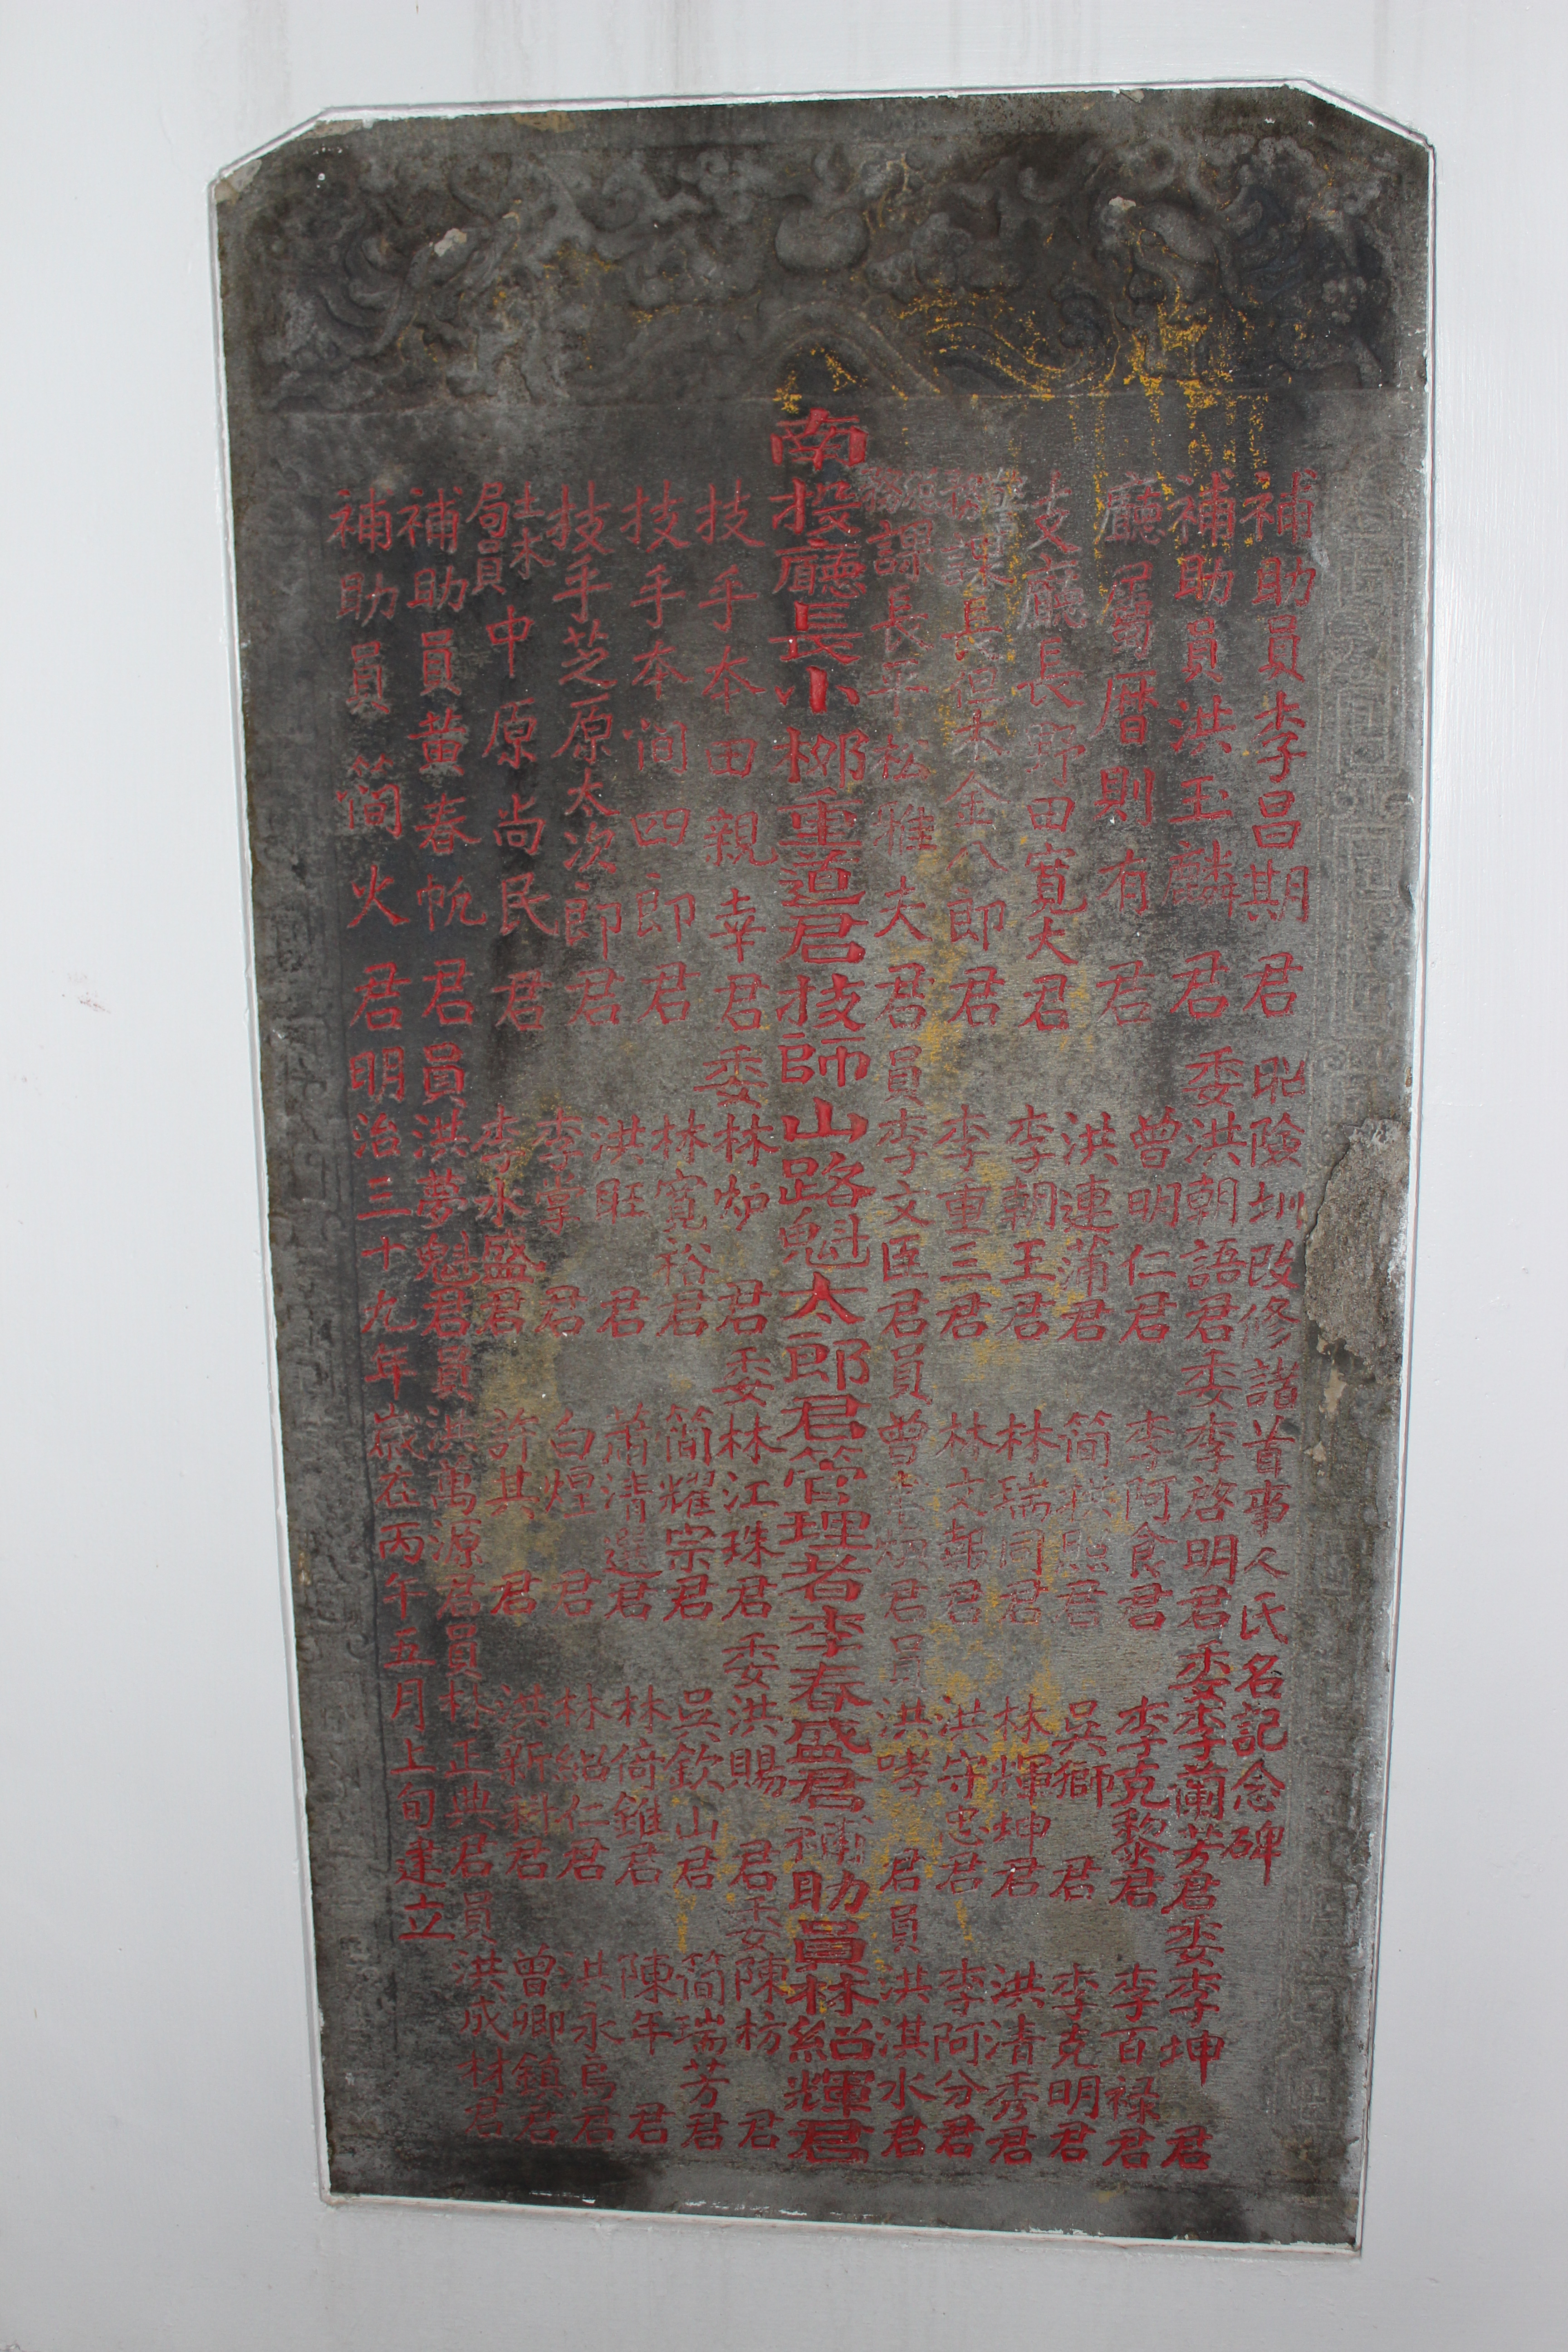 補助員李昌期君 圳險圳改修諸首事人氏名記念碑
補助員洪玉麟君 委洪朝語君委李啓明君委李蘭芳君委李坤君
廳屬曆則有君 曾明仁君 李阿食君 李克黎君 李百祿君
洪連蒲君 簡 熙君 吳獅君 李克明君
支廳長野田寬大君 李朝王君 林瑞同君 林輝坤君 洪清秀君
課長但木金八郎君 李重三君 林文報君 洪守忠君 李阿分君
務課長平松雅夫君 員李文臣君員曾 君員洪哮君員洪淇水君
南投廳長小栁重道君技師山路魁太郎君管理者李春盛君補助員林紹輝君
技手本田親幸君 委林炉君委林江珠君委洪賜君委陳枋君
技手本間四郎君 林寬裕君 簡耀宗君 吳欽山君 簡瑞芳君
洪旺君 蕭清選君 林倚錐君 陳年君
技手芝原太次郎君 李掌君 白煌君 林紹仁君 洪永烏君
土木局員中原尚民君 李水盛君 許其君 洪新科君 曾卿鎮君
補助員黃春帆君 員洪夢魁君員洪萬源君員林正典君員洪成材君
補助員簡火君 明治三十九年歲在丙午五月上旬建立